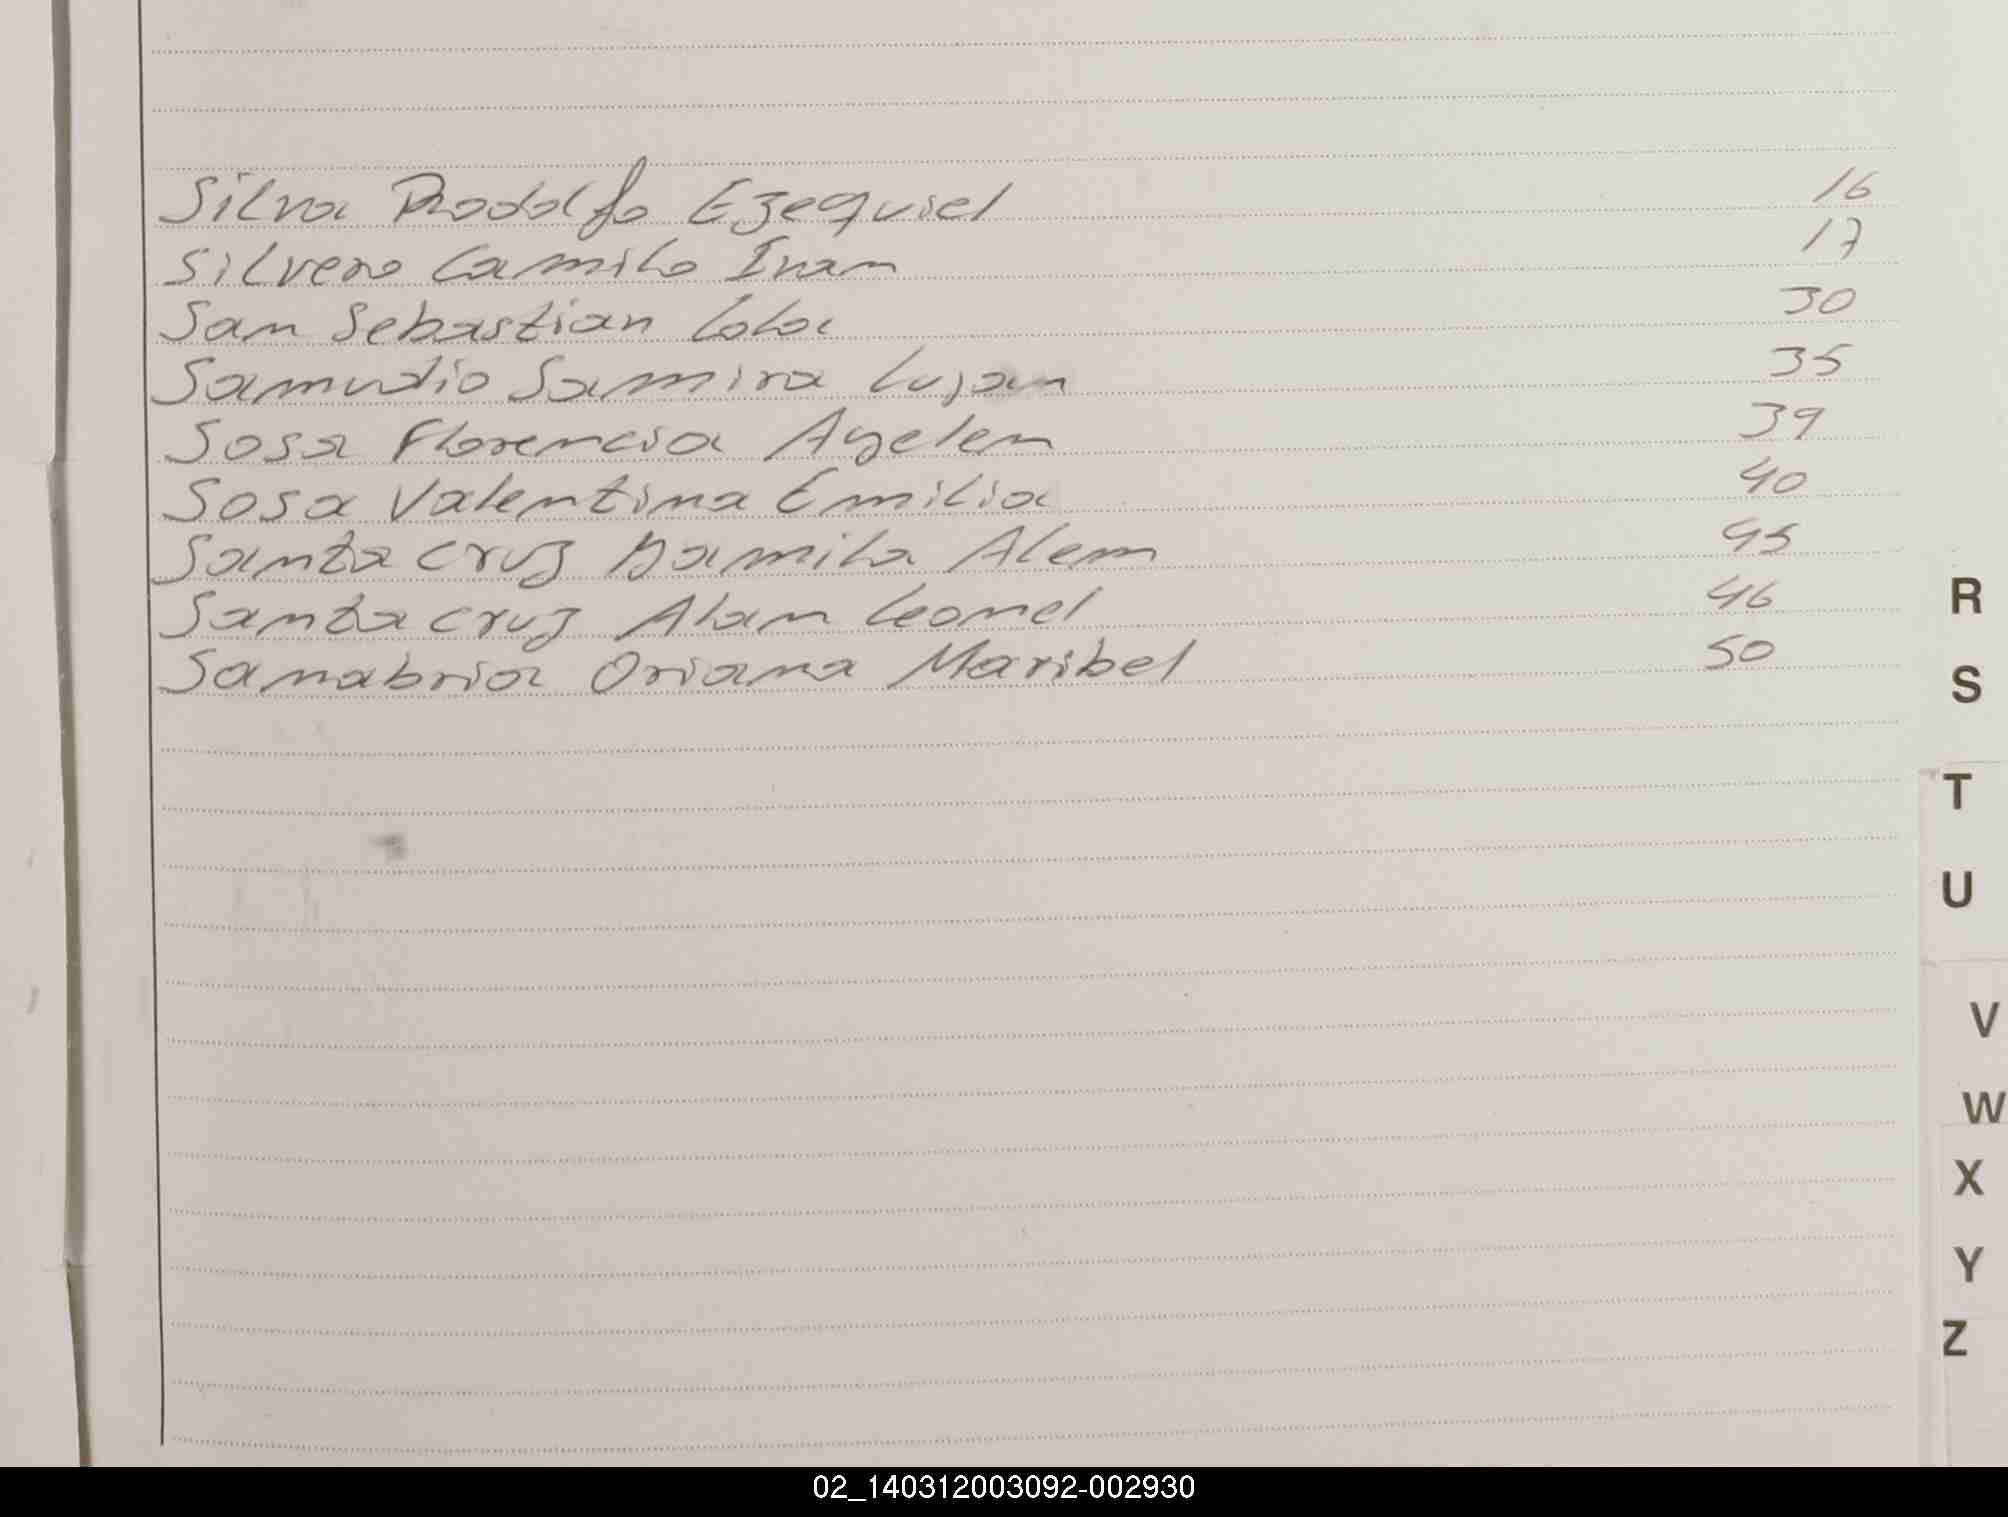 Silva Rodolfo Ezequiel 16
Silvero Camilo Ivan 17
San Sebastian Lola 30
Samudio Samira Lujan 35
Sosa Florencia Ayelen 39
Sosa Valentina Emilia 40
Santa cruz Damila Alem 45
Santa cruz Alan Leonel 46
Sanabria Oriana Maribel 50
R
S
T
U
V
W
X
Y
Z
02_140312003092-002930